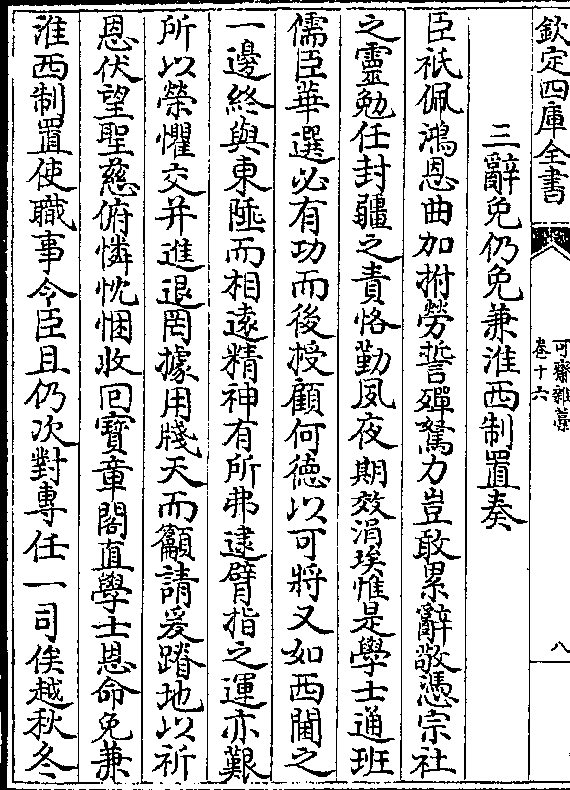 欽定四庫全書
可齋雜藁
卷十六
八
三辭免仍免兼淮西制置奏
臣祇佩鴻恩曲加拊勞誓殫駑力豈敢累辭敬憑宗社
之靈勉任封疆之責恪勤夙夜期效涓埃惟是學士通班
儒臣華選必有功而後授顧何德以可將又如西閫之
一邊終與東陲而相逺精神有所弗逮臂指之運亦艱
所以榮懼交并進退罔據用牋天而籲請爰蹐地以祈
恩伏望聖慈俯憐忱悃收囘寶章閣直學士恩命免兼
淮西制置使職事令臣且仍次對專任一司俟越秋冬